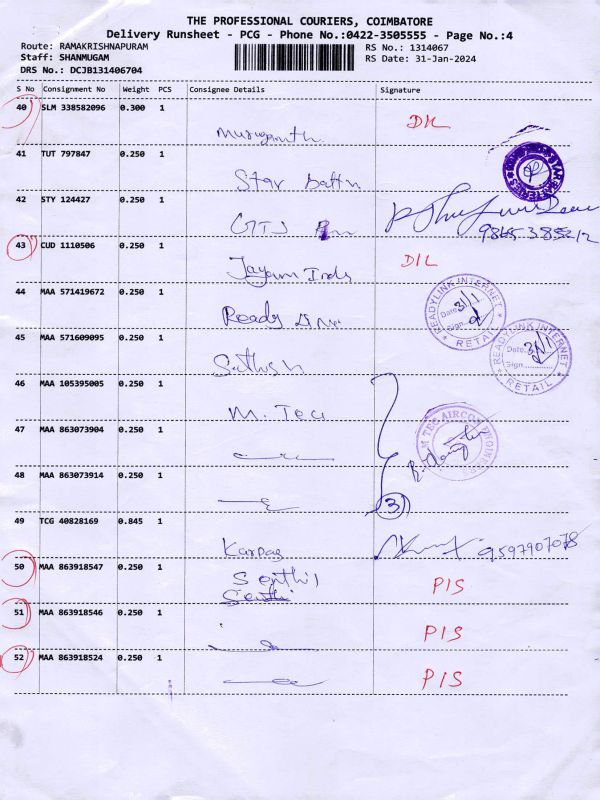 THE PROFESSIONAL COURIERS, COIMBATORE
Delivery Runsheet - PCG - Phone No.:0422-3505555 - Page No.:4
Route: RAMAKRISHNAPURAM RS No.: 1314067
Staff: SHANMUGAM RS Date: 31-Jan-2024
DRS No.: DCJB131406704
S No Consignment No Weight PCS Consignee Details Signature
40 SLM 338582096 0.300 1 D/L
41 TUT 797847 0.250 1 Star
42 STY 124427 0.250 1
43 CUD 1110506 0.250 1 D/L
44 MAA 571419672 0.250 1 Ready READYLINK INTERNET Date 31/1 Sign. RETAIL
45 MAA 571609095 0.250 1 READYLINK INTERNET Date 31/1 Sign. RETAIL
46 MAA 105395005 0.250 1 M. Tec
47 MAA 863073904 0.250 1 M TEC AIRCON ENGINEERS
48 MAA 863073914 0.250 1 3
49 TCG 40828169 0.845 1 Karpag 9597907078
50 MAA 863918547 0.250 1 Senthil P/S
51 MAA 863918546 0.250 1 P/S
52 MAA 863918524 0.250 1 P/S